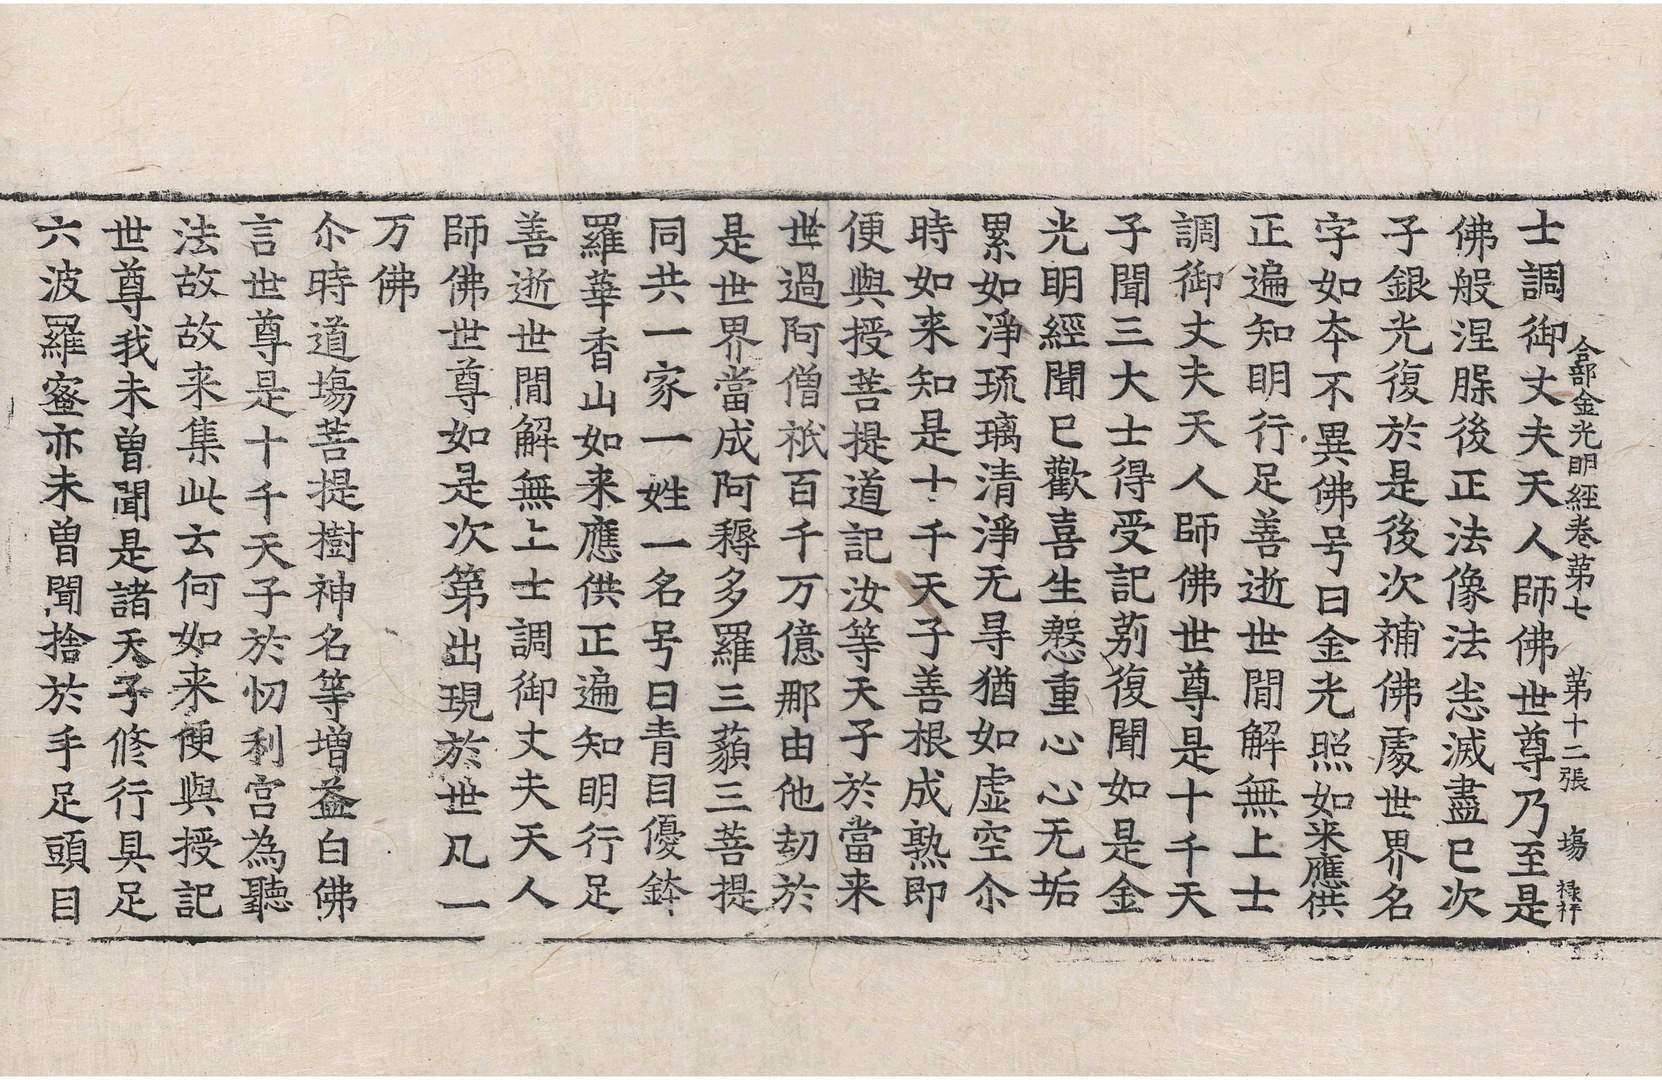 合部金光明經卷苐七 苐十二張 塲 祿祥
士調御丈夫天人師佛世尊乃至是
佛般涅腂後正法像法悉滅盡已次
子銀光復於是後次補佛處世界名
字如夲不異佛号曰金光照如来應供
正遍知明行足善逝世間解無上士
調御丈夫天人師佛世尊是十千天
子聞三大士得受記莂復聞如是金
光明經聞已歡喜生慇重心心无垢
累如淨琉璃清淨无㝵猶如虛空尒
時如来知是十千天子善根成熟即
便與授菩提道記汝等天子於當来
世過阿僧祇百千万億那由他劫於
是世界當成阿耨多羅三藐三菩提
同共一家一姓一名号曰青目優鉢
羅華香山如来應供正遍知明行足
善逝世間解無上士調御丈夫天人
師佛世尊如是次苐出現於世凡一
万佛
尒時道塲菩提樹神名等增益白佛
言世尊是十千天子於忉利宫為聽
法故故来集此云何如来便與授記
世尊我未曾聞是諸天子修行具足
六波羅蜜亦未曾聞捨於手足頭目